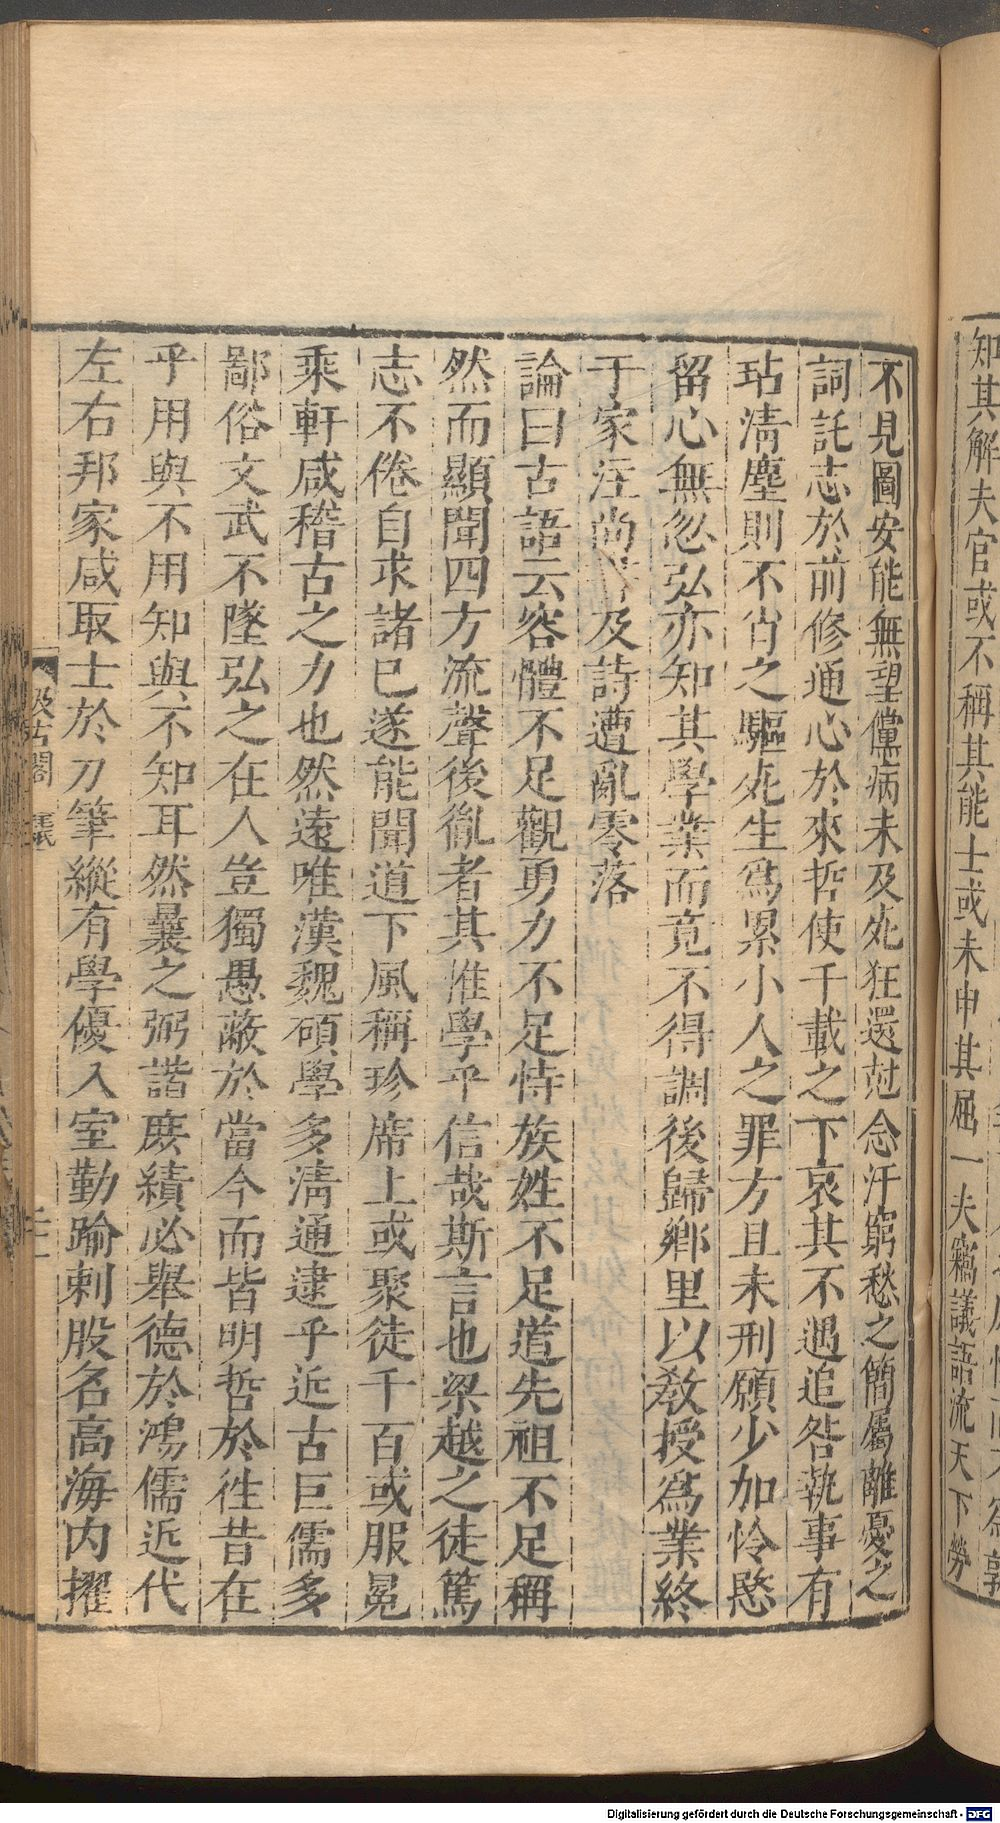 知其解夫官或不稱其能士或未申其屈一夫竊議語流天下勞
不見圖安能無望儻病未及死狂還尅念汗窮愁之簡屬離憂之
詞託志於前修通心於來哲使千載之下哀其不遇追咎執事有
玷清塵則不肖之軀死生為累小人之罪方且未刑願少加怜愍
留心無忽弘亦知其學業而竟不得調後歸鄉里以教授為業終
于家注尚及詩遭亂零落
論曰古語云容體不足觀勇力不足恃族姓不足道先祖不足稱
然而顯聞四方流聲後胤者其惟學乎信哉斯言也梁越之徒篤
志不倦自求諸己遂能聞道下風稱珍席上或聚徒千百或服冕
乘軒咸稽古之力也然遠唯漢魏碩學多清通逮乎近古巨儒多
鄙俗文武不墜弘之在人豈獨愚蔽於當今而皆明哲於徃昔在
乎用與不用知與不知耳然曩之弼諧庶績必舉德於鴻儒近代
左右邦家咸取士於刀筆縱有學優入室勤踰刺股名高海内擢
汲古閣
Digitalisierung gefördert durch die Deutsche Forschungsgemeinschaft - DFG